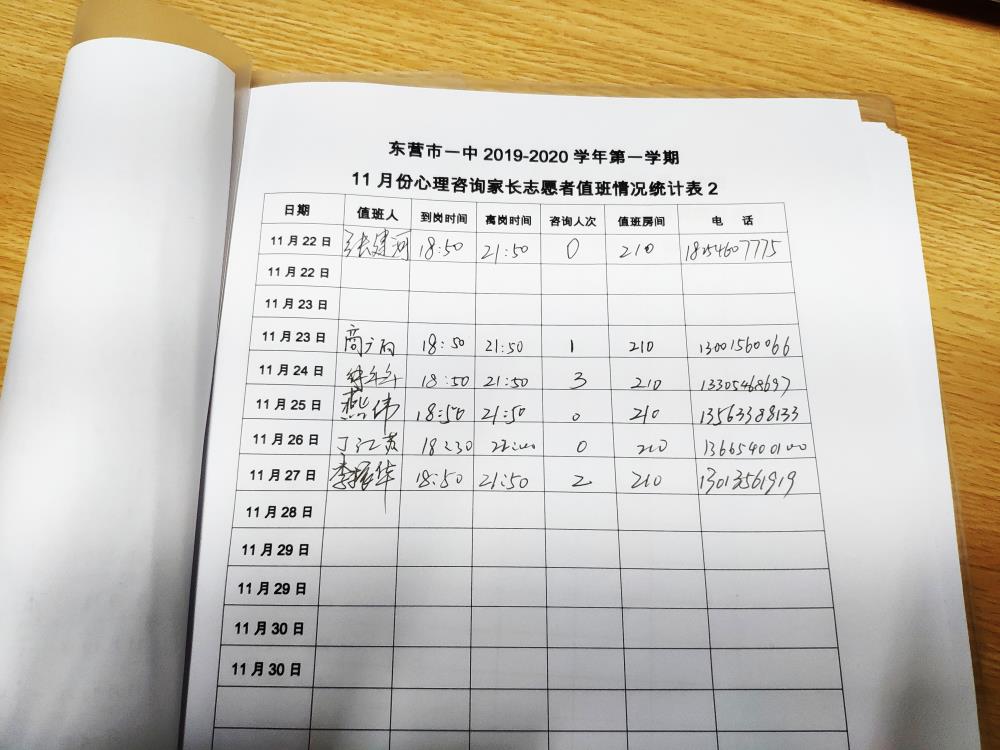 东营市一中 2019-2020 学年第一学期
11 月份心理咨询家长志愿者值班情况统计表 2
日期 值班人 到岗时间 离岗时间 咨询人次 值班房间 电 话
11 月 22 日 张建河 18:50 21:50 0 210 18254607775
11 月 22 日
11 月 23 日
11 月 23 日 18:50 21:50 1 210 13001560066
11 月 24 日 18:50 21:50 3 210 13305468697
11 月 25 日 燕伟 18:50 21:50 0 210 13563388133
11 月 26 日 18:30 22:00 0 210 13665400100
11 月 27 日 李振华 18:50 21:50 2 210 13013561919
11 月 28 日
11 月 29 日
11 月 29 日
11 月 30 日
11 月 30 日